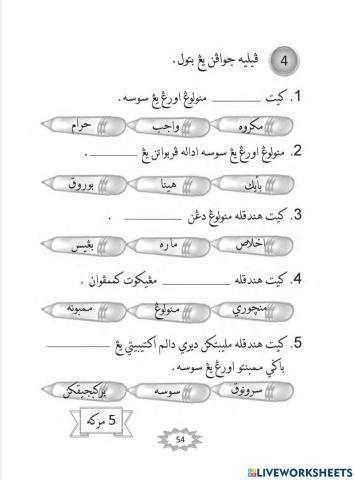 4 ڤيليه جواڤن يڠ بتول.
1. كيت ________ منولوڠ اورڠ يڠ سوسه.
مكروه واجب حرام
2. منولوڠ اورڠ يڠ سوسه اداله ڤربواتن يڠ ________.
باٴيك هينا بوروق
3. كيت هندقله منولوڠ دڠن ________ .
اخلاص ماره بڠيس
4. كيت هندقله ________ مڠيكوت كممڤوان .
منچوري منولوڠ ممبونه
5. كيت هندقله مليبتكن ديري دالم اكتيبيتي يڠ ________
باݢي ممبنتو اورڠ يڠ سوسه.
سرونوق سوسه بركبجيقكن
5 مركه
54
LIVEWORKSHEETS